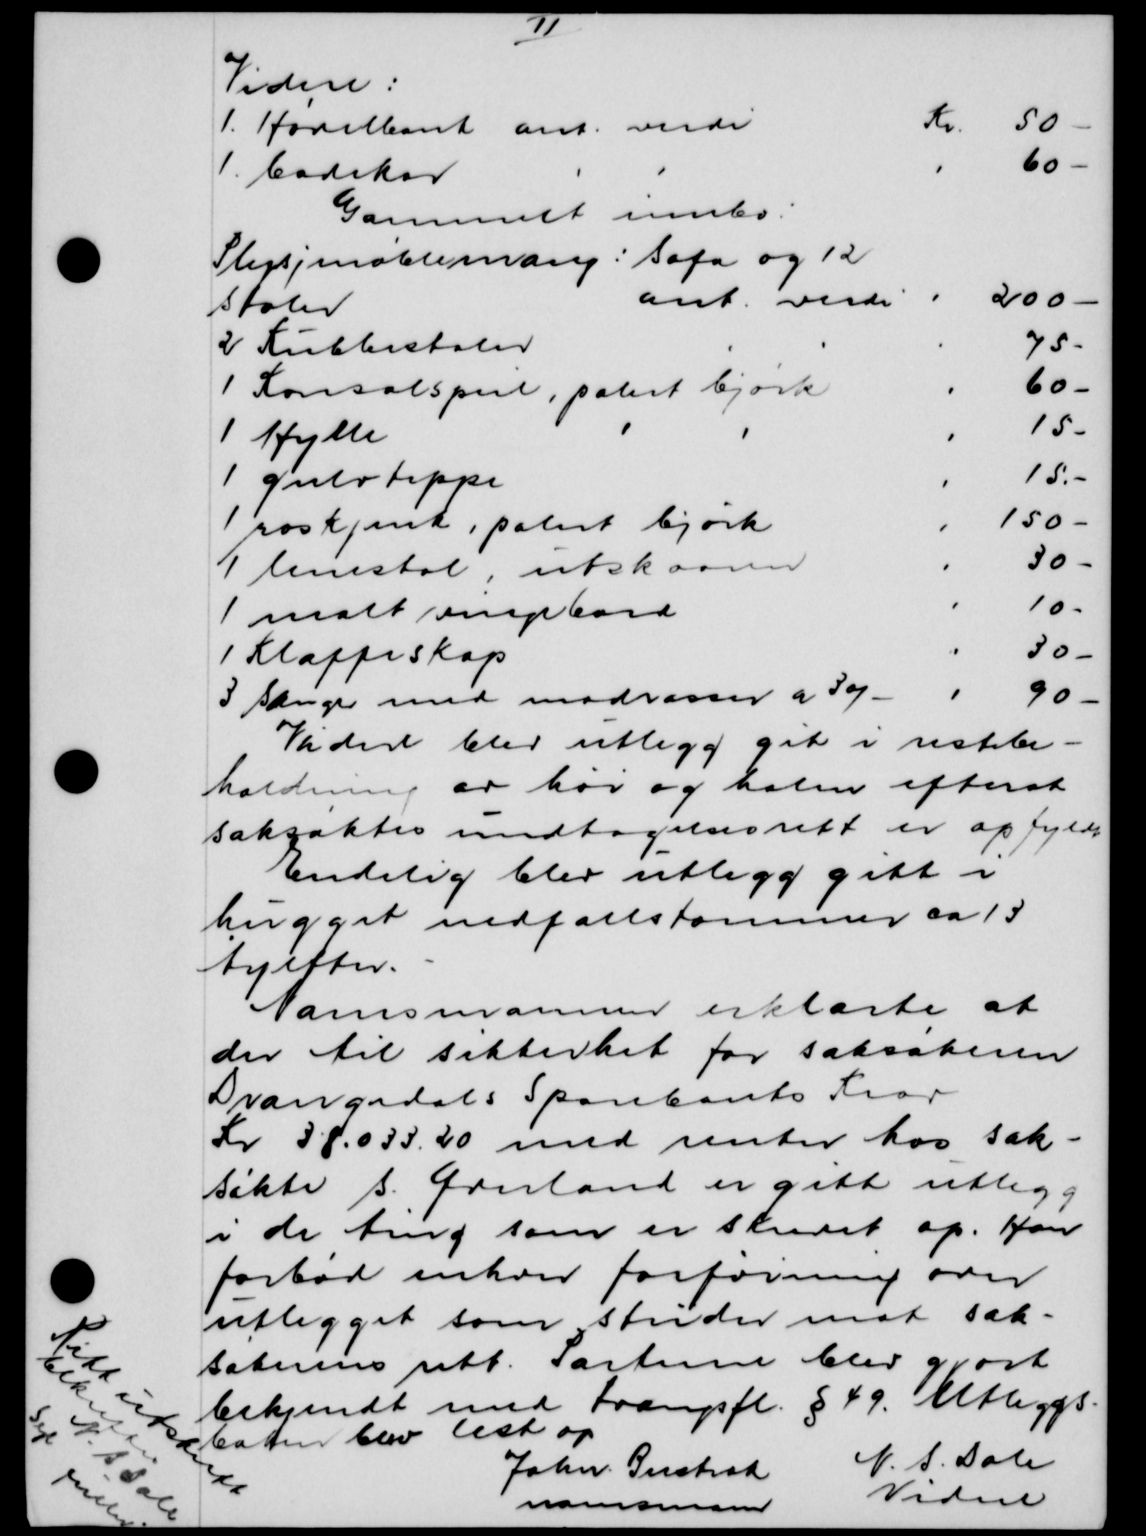 11
Videre:
1. Høvelbenk ant. verdi Kr. 50 -
1. badekar " " " 60 -
Gammelt innbo:
Plysjmøblemang: Sofa og 12
stoler ant. verdi " 200 -
2 Kubbestoler " " " 75 -
1 Konsolspeil, polert bjørk " 60 -
1 Hylle " " " 15 -
1 gulvteppe " 15.-
1 roskjenk, polert bjørk " 150 -
1 lenestol, utskaaren " 30 -
1 malt bord " 10 -
1 Klaffeskap " 30 -
3 senger med madrasser a 30/- " 90 -
Videre blev utlegg git i restbe-
holdning av høi og halm efterat
saksøktes undtagelsesrett er opfyldt
Endelig blev utlegg gitt i
hugget nedfallstømmer ca 13
tylfter. -
Namsmannen erklærte at
der til sikkerhet for saksøkeren
Drangedals Sparebanks Krav
Kr 38.033.20 med renter hos sak-
søkte S. Grønland er gitt utlegg
i de ting som er skrevet op. Han
forbød enhver forføining over
utlegget som strider mot sak-
søkerens rett. Partene blev gjort
bekjendt med tvangsfl. § 49. Utleggs-
boken blev lest op
John N. S. Dale
namsmann Vidne
Rett utskrift
bekreftes
N. S. Dale